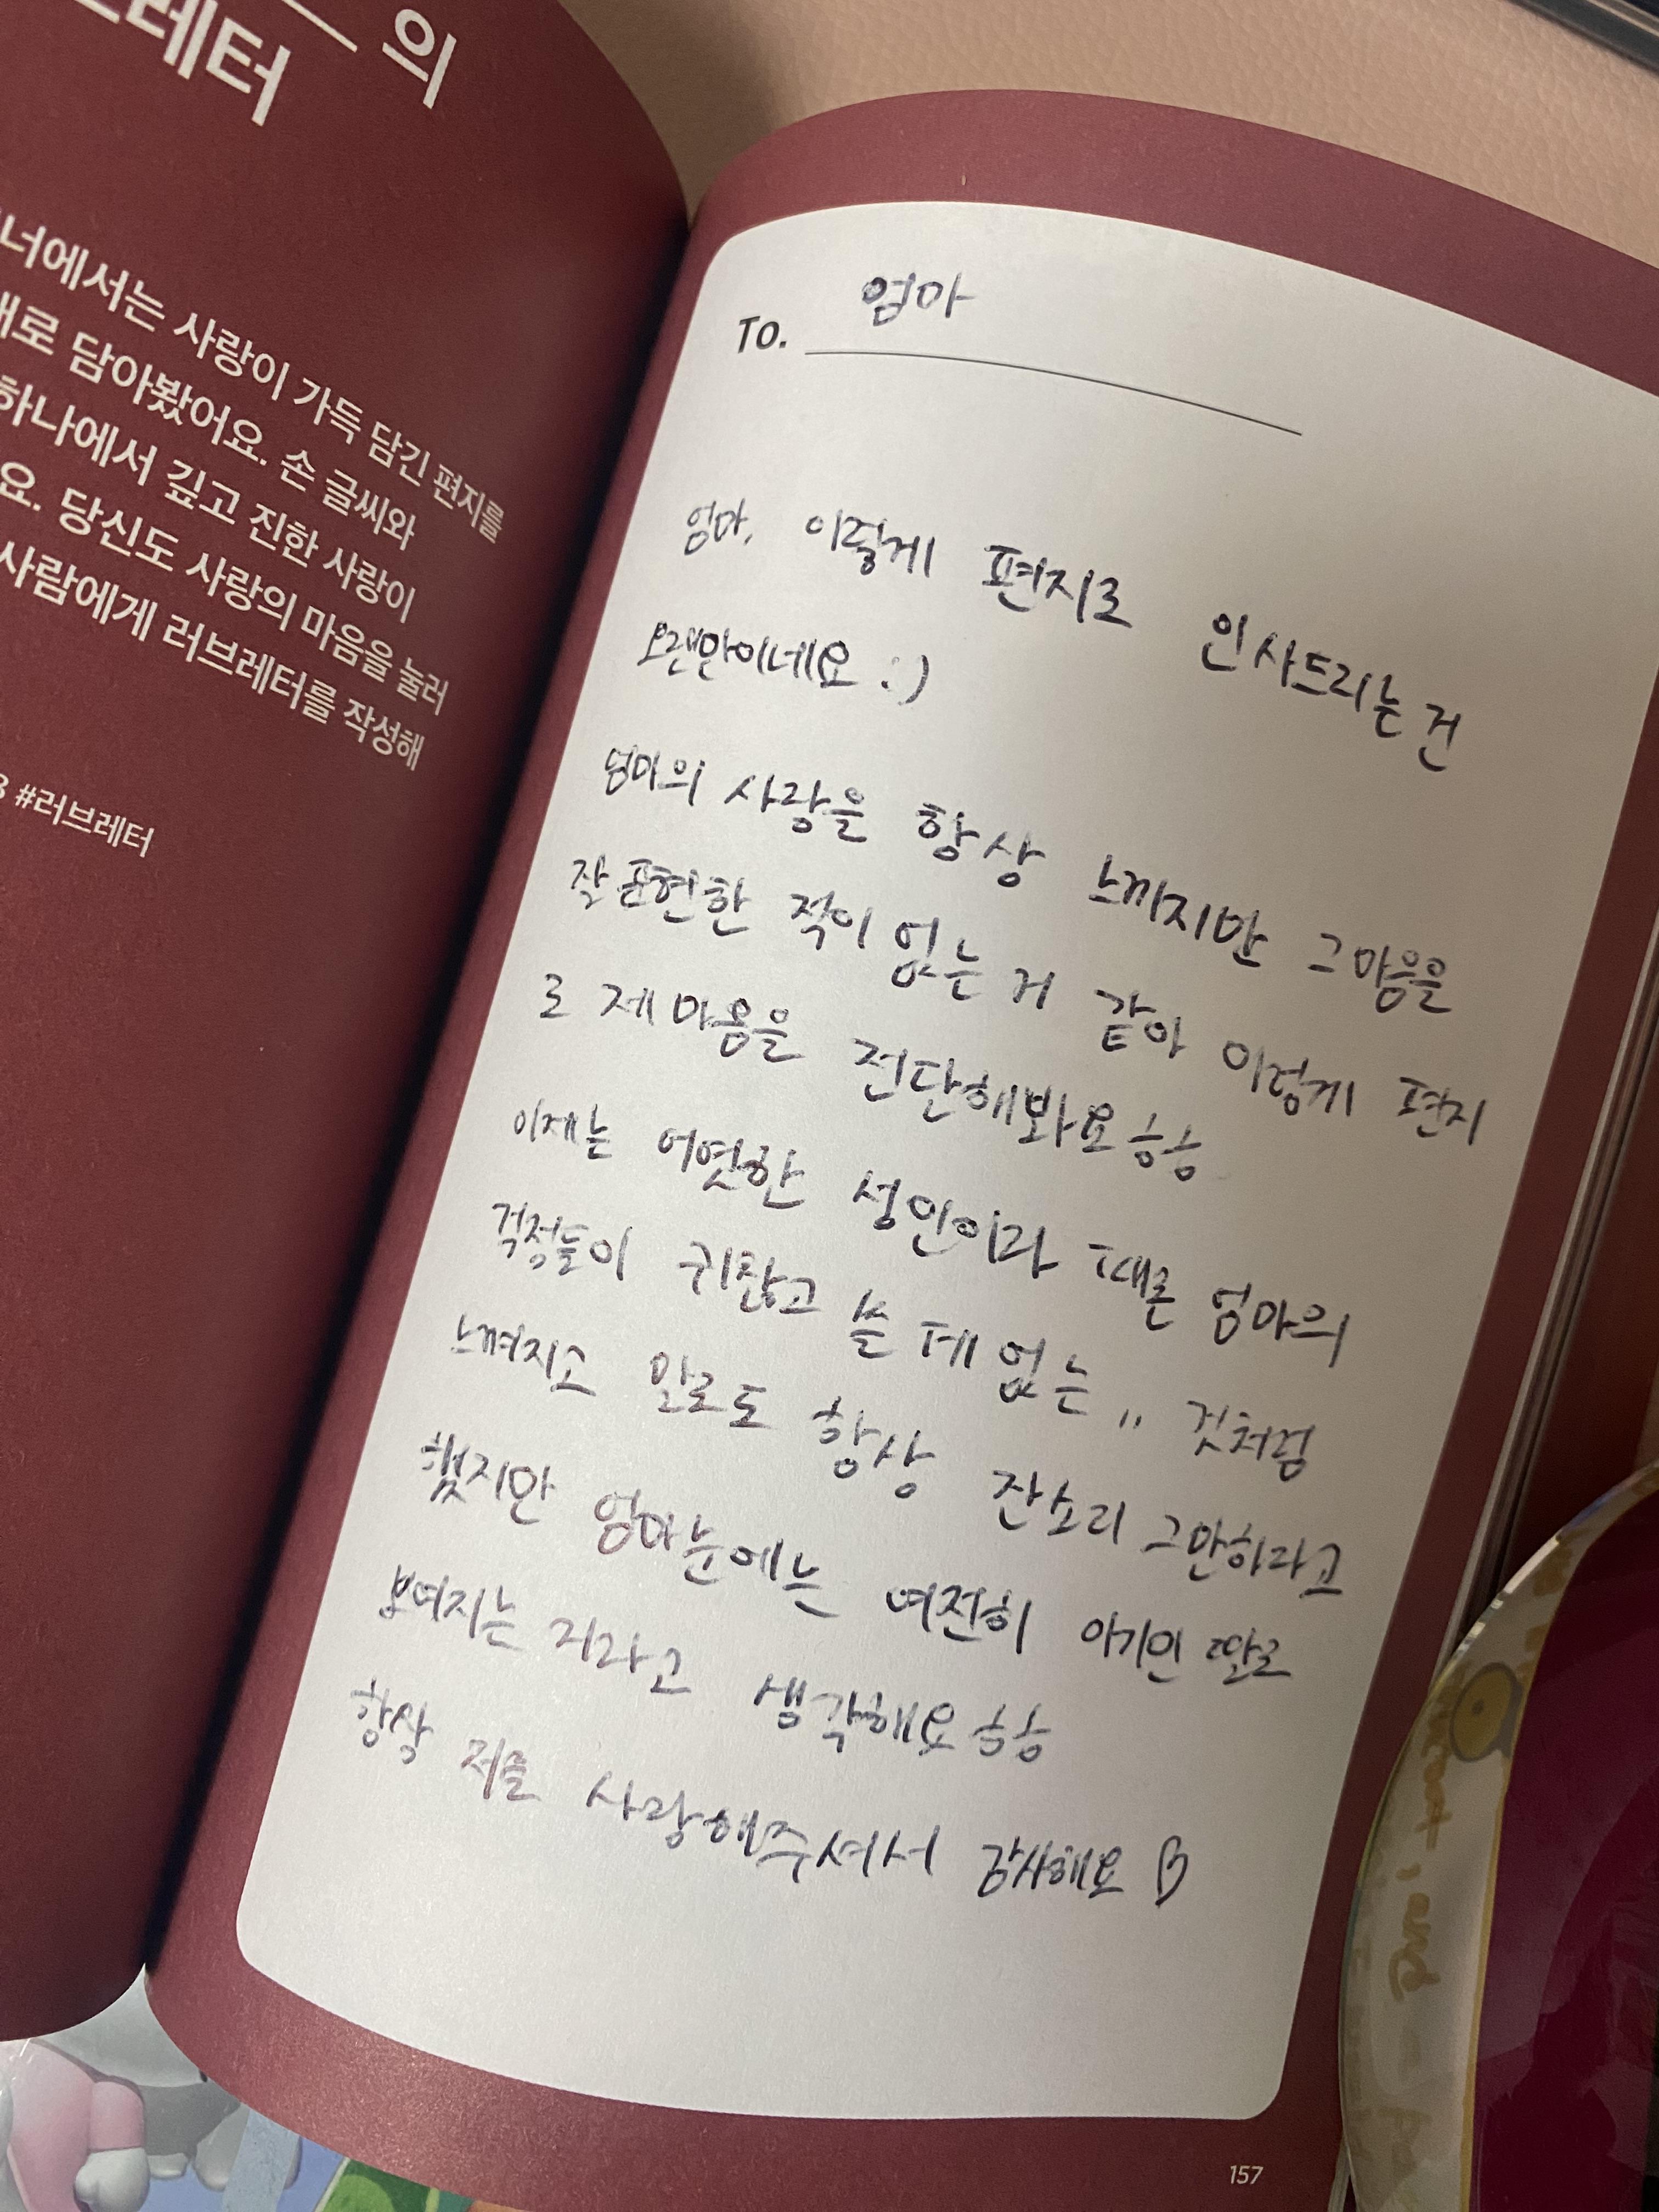 의
브레터
너에서는 사랑이 가득 담긴 편지를
대로 담아봤어요. 손 글씨와
하나에서 깊고 진한 사랑이
요. 당신도 사랑의 마음을 눌러
사람에게 러브레터를 작성해
#러브레터
TO. 엄마
엄마, 이렇게 편지로 인사드리는 건
오랜만이네요 :)
엄마의 사랑을 항상 느끼지만 그 마음을
잘 표현한 적이 없는 거 같아 이렇게 편지
로 제 마음을 전달해봐요ㅎㅎ
이제는 어엿한 성인이라 때론 엄마의
걱정들이 귀찮고 쓸 데 없는 " 것처럼
느껴지고 말로도 항상 잔소리 그만하라고
했지만 엄마 눈에는 여전히 아기인 딸로
보여지는 거라고 생각해요ㅎㅎ
항상 저를 사랑해주셔서 감사해요 ♡
157